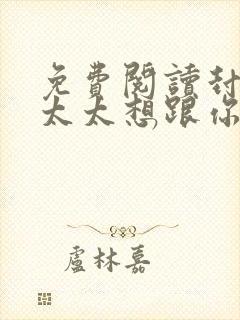 免費閱讀封
太太想跟你
盧林嘉